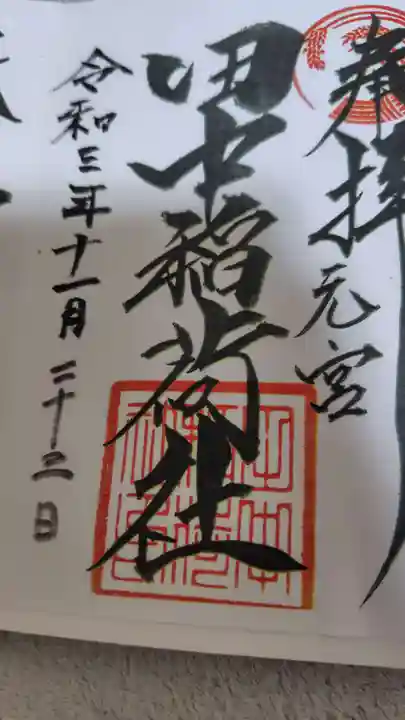 奉拝
元宮
田中稲荷社
令和三年十一月二十三日